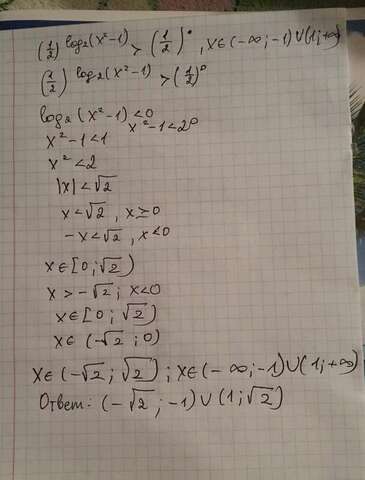 (1/2)^log₂(x²-1) > (1/2)⁰, x∈(-∞;-1)∪(1;+∞)
(1/2)^log₂(x²-1) > (1/2)⁰
log₂(x²-1)<0
x²-1<1 x²-1<2⁰
x²<2
|x|<√2
x<√2, x≥0
-x<√2, x<0
x∈[0;√2)
x>-√2; x<0
x∈[0;√2)
x∈(-√2;0)
x∈(-√2;√2); x∈(-∞;-1)∪(1;+∞)
Ответ: (-√2;-1)∪(1;√2)